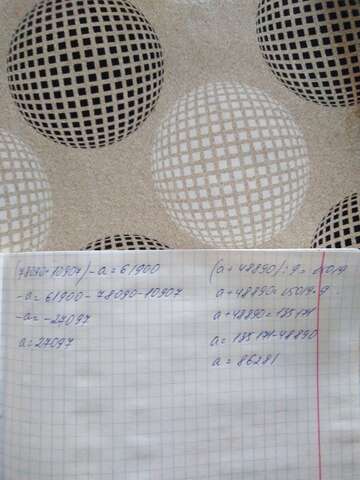 (78090+10907)-a=61900
-a=61900-78090-10907
-a=-27097
a=27097
(a+48890):9=15019
a+48890=15019·9
a+48890=135171
a=135171-48890
a=86281